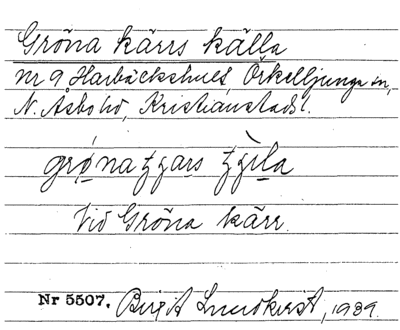 Gröna kärrs källa
nr 9 Harbäckshult, Örkelljunga sn,
N. Åsbo hd, Kristianstads l.
Vid Gröna kärr.
Nr 5507. Birgit Lundkvist, 1939.